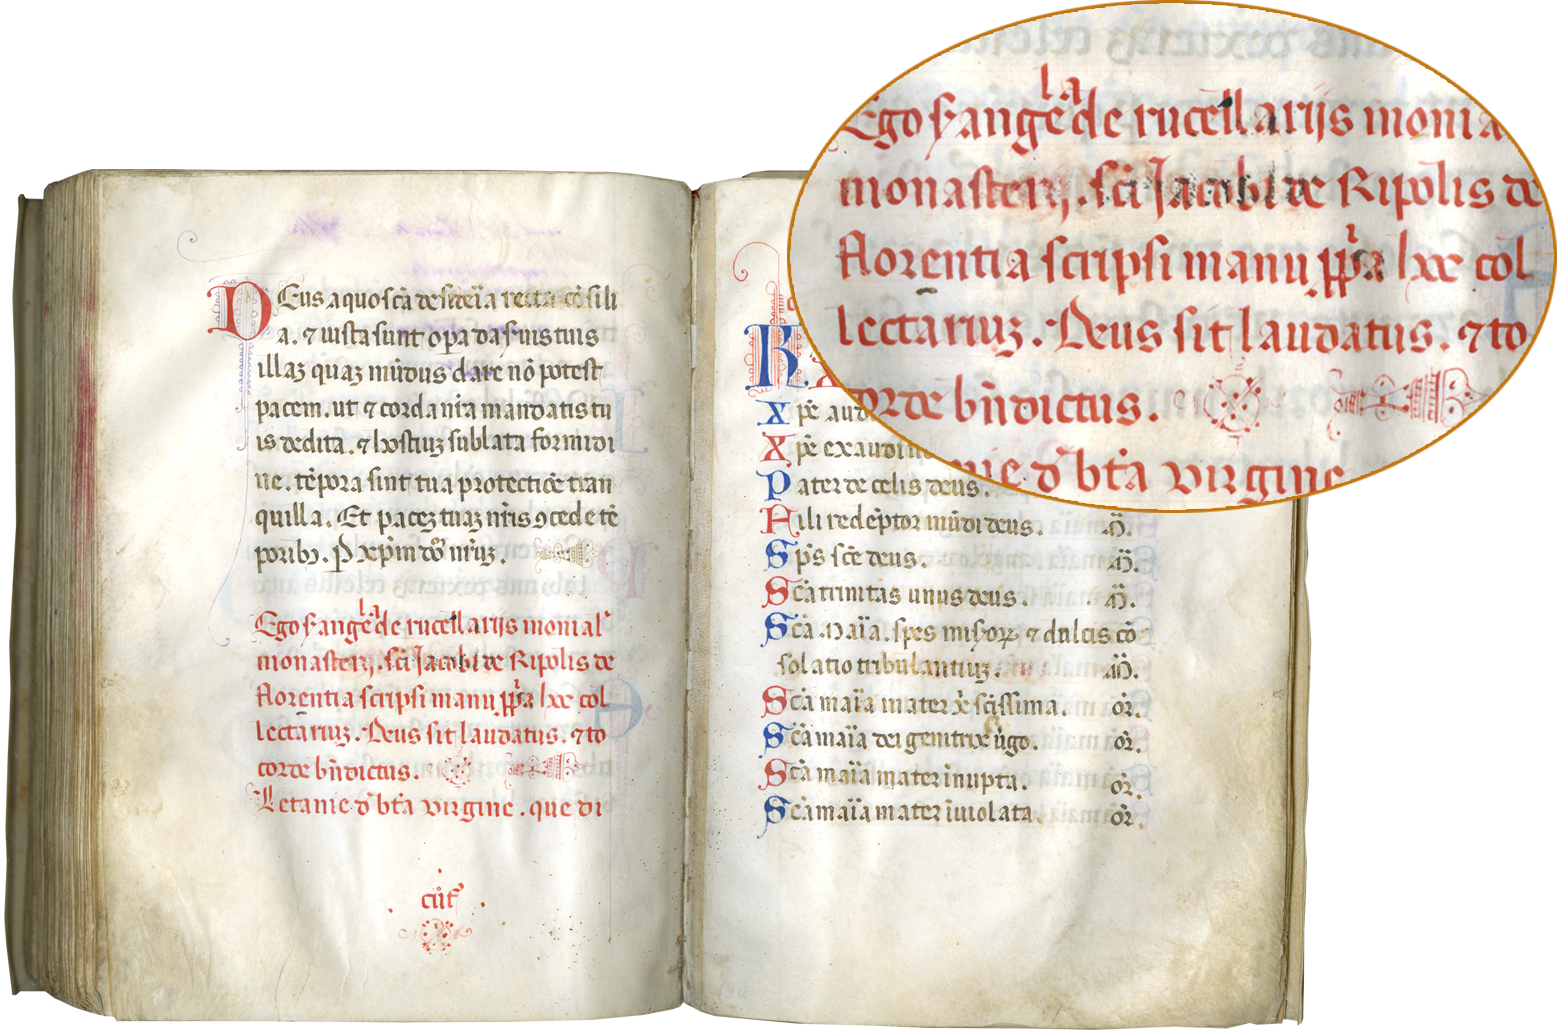 Deus a quo scā desideīa recta cōsili
a. ⁊ iusta sunt opa da suis tuis
illaꝫ quaꝫ mūdus dare nō potest
pacem. ut ⁊ corda nīa mandatis tu
is dedita. ⁊ hostiuꝫ sublata formidi
ne. tēpora sint tua protectiōe tran
quilla. Et paceꝫ tuaꝫ nr̄is ꝯcede tē
poribꝫ. P xp̄m dō nr̄uꝫ.
Ego s. angela de rucellarijs monial
monasterij. sc̄i Jacobi de Ripolis de
florentia scripsi manu ꝓpa hoc col
lectariuꝫ. Deus sit laudatus. ⁊ to
corde bn̄dictus.
Letanie d̄ btā virgine. que di
cūt
X pē
X pē exaudi
P ater de celis deus.
F ili redēptor mūdi deus. m̄.
S ps̄ scē deus. m̄.
S cā trinitas unus deus. m̄.
S cā maīa. spes misoꝝ ⁊ dulcis cō
solatio tribulantiuꝫ. m̄.
S cā maīa mater x̄ scīssima. or̄.
S cā maīa dei genitrix ūgo. or̄.
S cā maīa mater inupta. or̄.
S cā maīa mater īuiolata. or̄.
Ego s. angela de rucellarijs monia
monasterij. sc̄i Jacobi de Ripolis de
florentia scripsi manu ꝓpa hoc col
lectariuꝫ. Deus sit laudatus. ⁊ to
orde bn̄dictus.
nie d̄ btā virgine